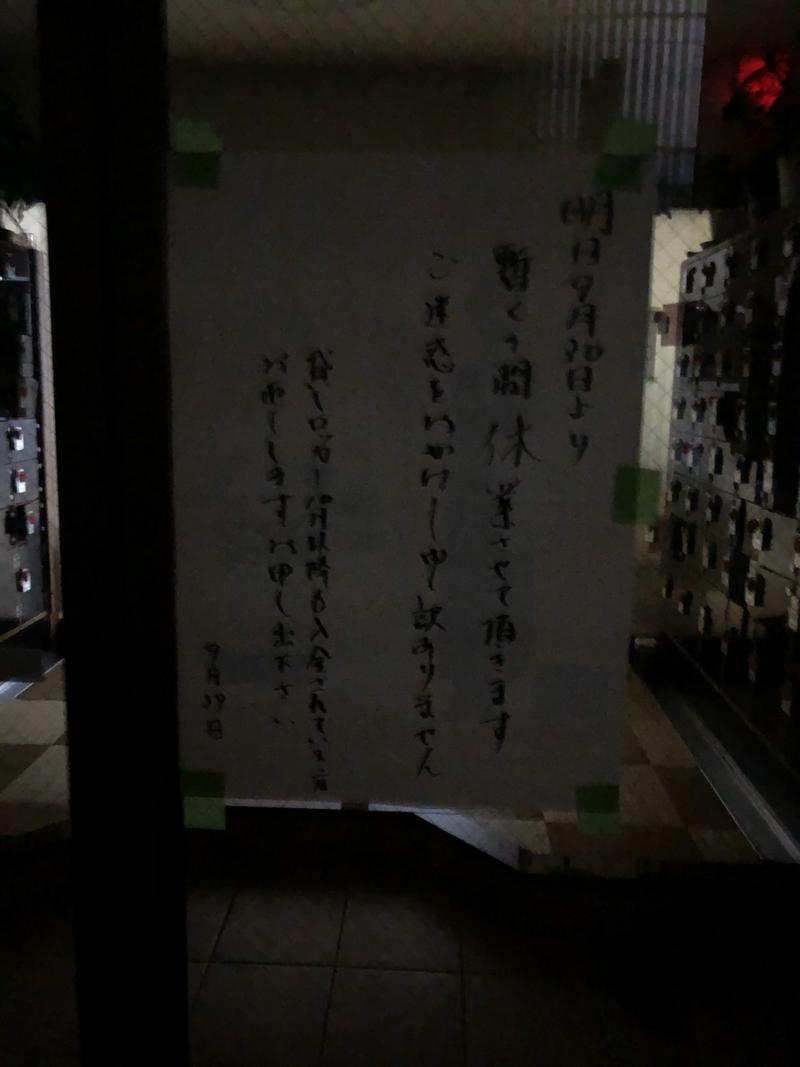 明日9月30日より
暫くの間休業させて頂きます
ご迷惑をおかけし申し訳ありません
貸しロッカー10月以降も入金されている方
お返ししますお申し出下さい
9月29日